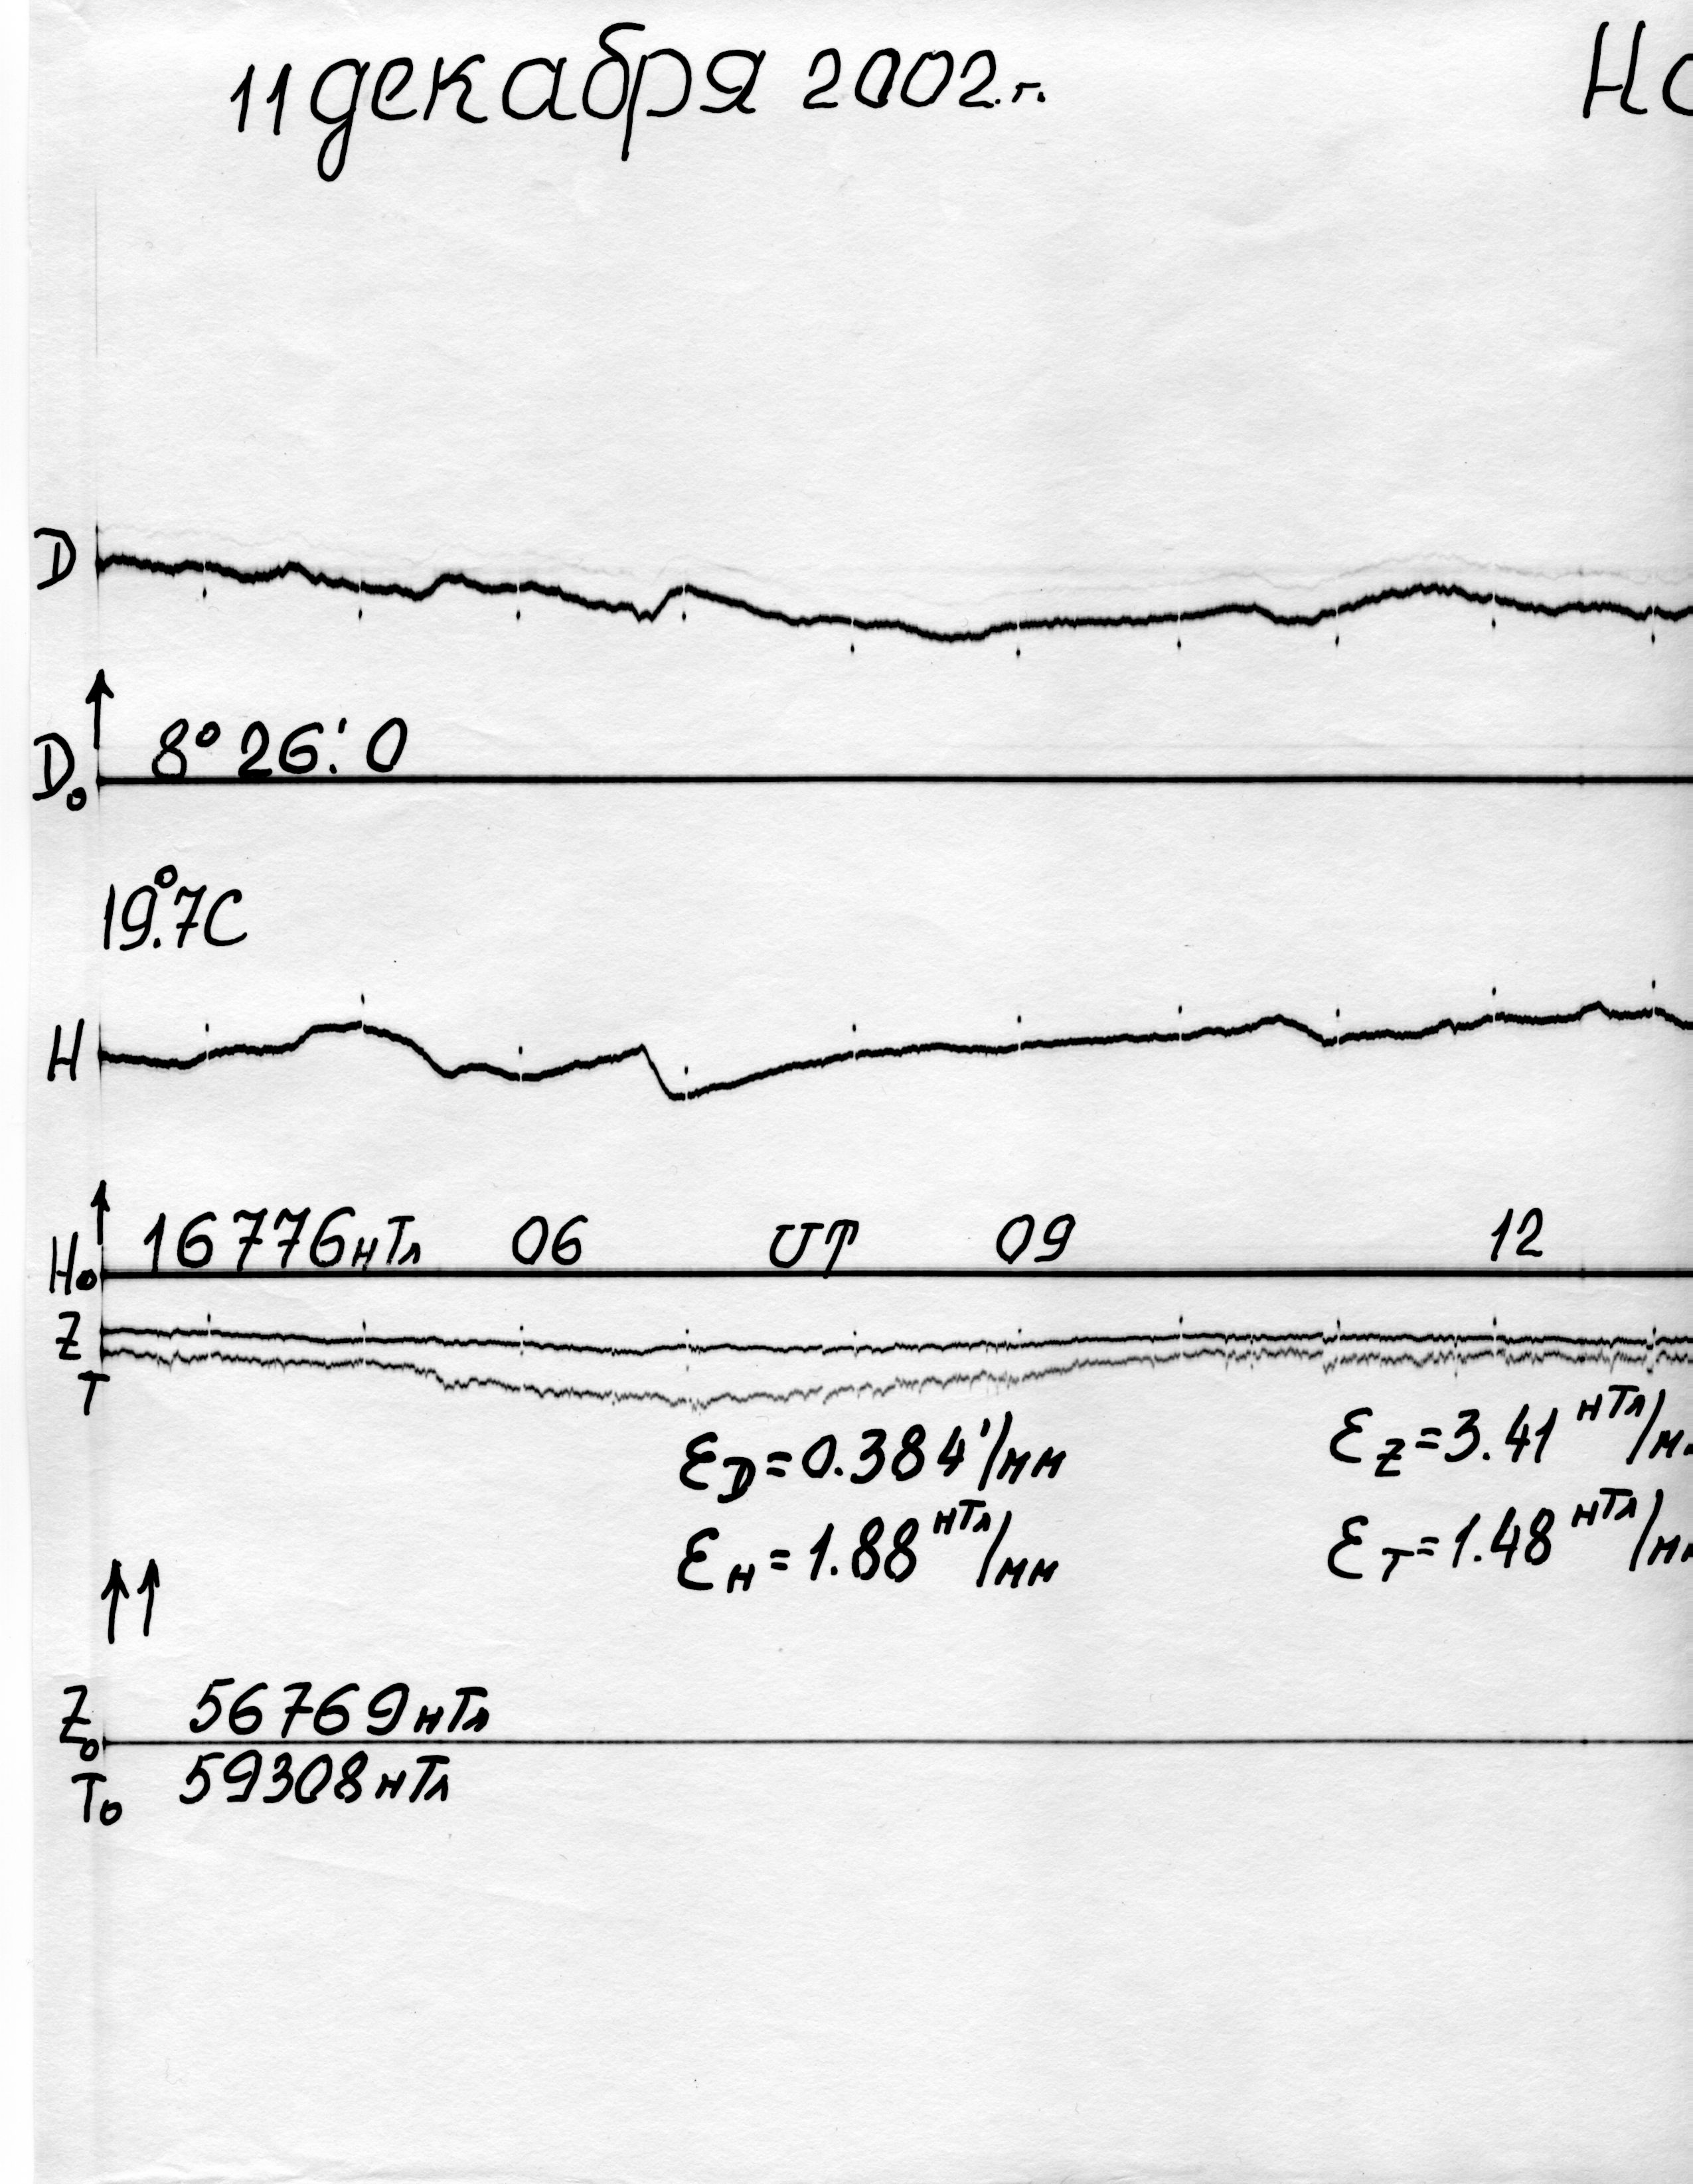 11 декабря 2002.г. Но
D
D₀ 8° 26.′0
19.°7С
H
H₀ 16776нТл 06 UT 09 12
Z
T
ℰD=0.384′/мм ℰZ=3.41 нТл/м
ℰH=1.88 нТл/мм ℰT=1.48 нТл/мм
Z₀ 56769нТл
T₀ 59308нТл